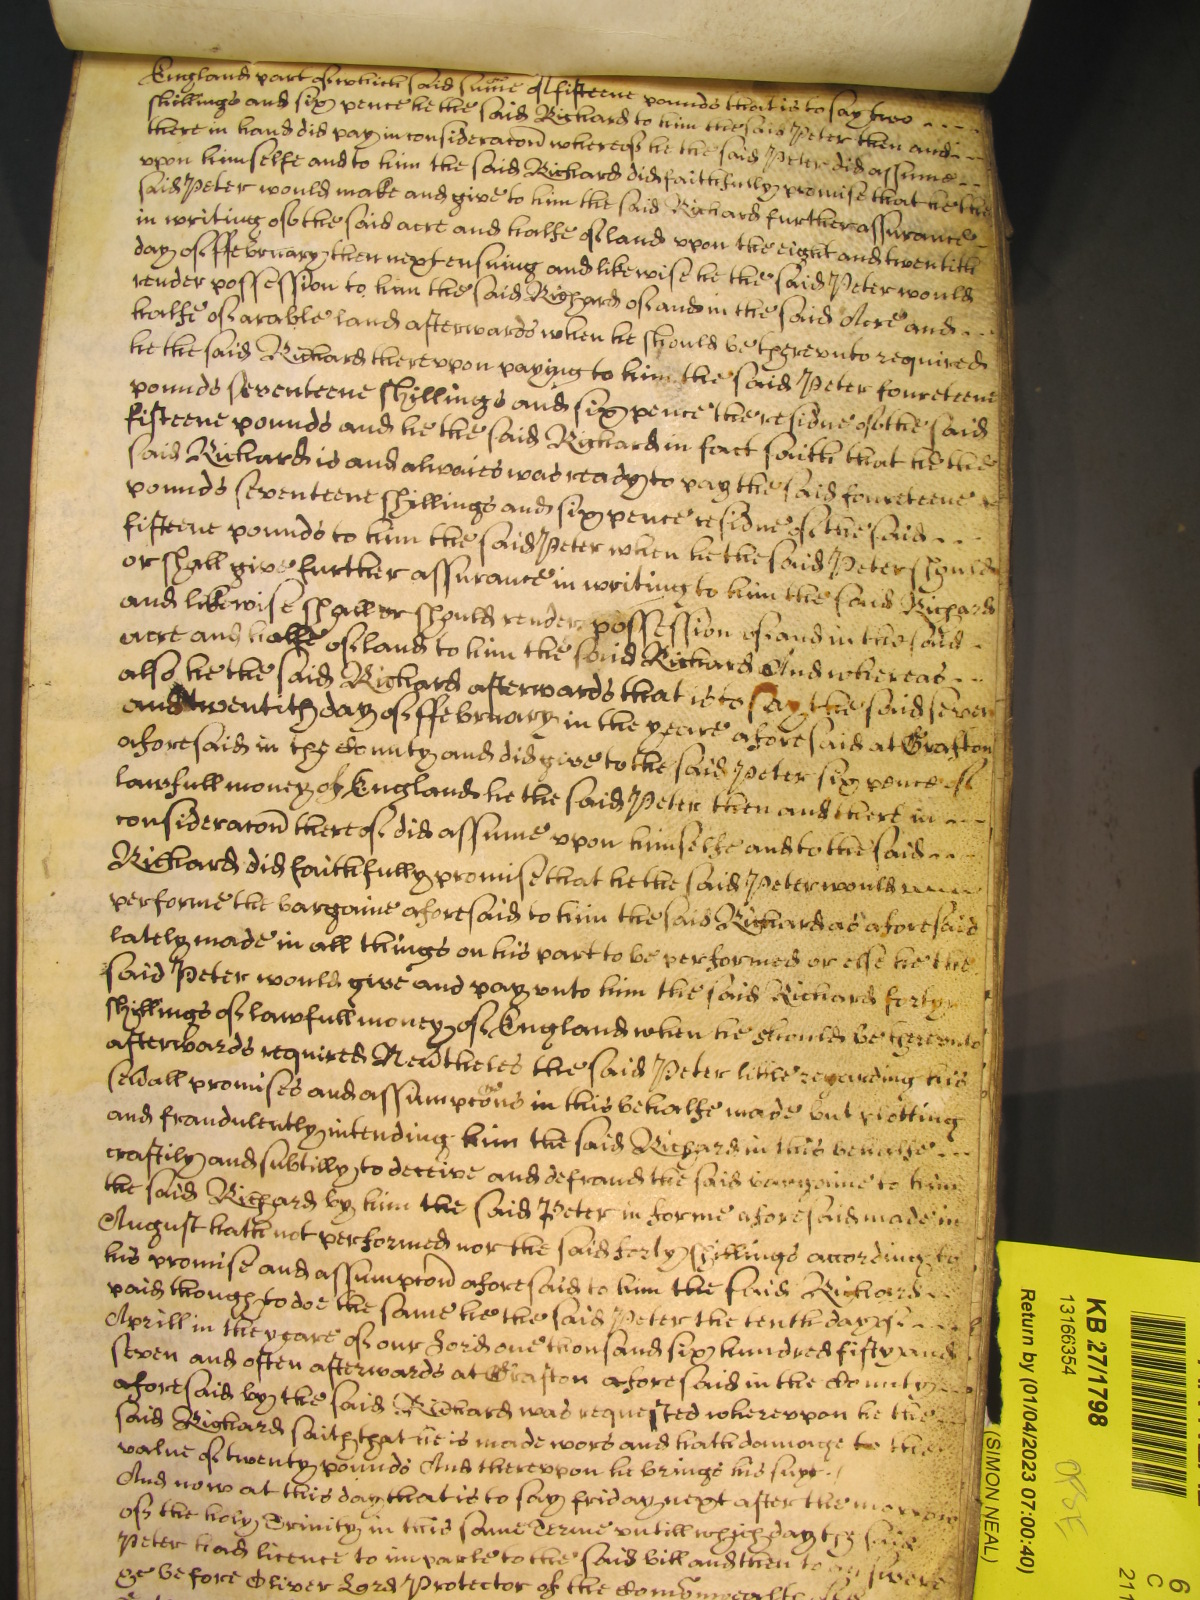 England part of which said sume of fifteene pounds that is to say two
shillings and six pence he the said Richard to him the said Peter then and
there in hand did pay in consideracon whereof he the said Peter did assume
upon himselfe and to him the said Richard did faithfully promise that he the
said Peter would make and give to him the said Richard further assurance
in writing of the said acre and halfe of land upon the eight and twentith
day of ffebruary then next ensuing and likewise he the said Peter would
render possession to him the said Richard of and in the said Acre and
halfe of arable land afterwards when he should be thereunto required
he the said Richard thereupon paying to him the said Peter foureteene
pounds seventeene shillings and six pence the residue of the said
fifteene pounds and he the said Richard in fact saith that he the
said Richard is and alwaies was ready to pay the said foureteene
pounds seventeene shillings and six pence residue of the said
fifteene pounds to him the said Peter when he the said Peter should
or shall give further assurance in writing to him the said Richard
and likewise shall or should render possession of and in the said
acre and halfe of land to him the said Richard And whereas
also he the said Richard afterwards that is to say the said seven
and twentith day of ffebruary in the yeare aforesaid at Grafton
aforesaid in the County and did give to the said Peter six pence of
lawfull money of England he the said Peter then and there in
consideracon thereof did assume upon himselfe and to the said
Richard did faithfully promise that he the said Peter would
performe the bargaine aforesaid to him the said Richard as aforesaid
lately made in all things on his part to be performed or else he the
said Peter would give and pay unto him the said Richard forty
shillings of lawfull money of England when he should be thereunto
afterwards required Nevtheles the said Peter little regarding his
sevall promises and assumpcons in this behalfe made but plotting
and fraudulently intending him the said Richard in this behalfe
craftily and subtilly to deceive and defraud the said bargaine to him
the said Richard by him the said Peter in forme aforesaid made in
August hath not performed nor the said forty shillings according to
his promise and assumpcon aforesaid to him the said Richard
paid though to doe the same he the said Peter the tenth day of
Aprill in the yeare of our Lord one thousand six hundred fifty and
seven and often afterwards at Grafton aforesaid in the County
aforesaid by the said Richard was requested whereupon he the
said Richard saith that he is made wors and hath damage to the
value of twenty pounds And thereupon he brings his suyt
And now at this day that is to say friday next after the morrow
of the holy Trinity in this same Terme untill which day the said
Peter had licence to imparle to the said bill and then to answere
before Oliver Lord Protector of the
KB 27/1798
13166354
Return by (01/04/2023 07:00:40)
(SIMON NEAL)
6
C
211